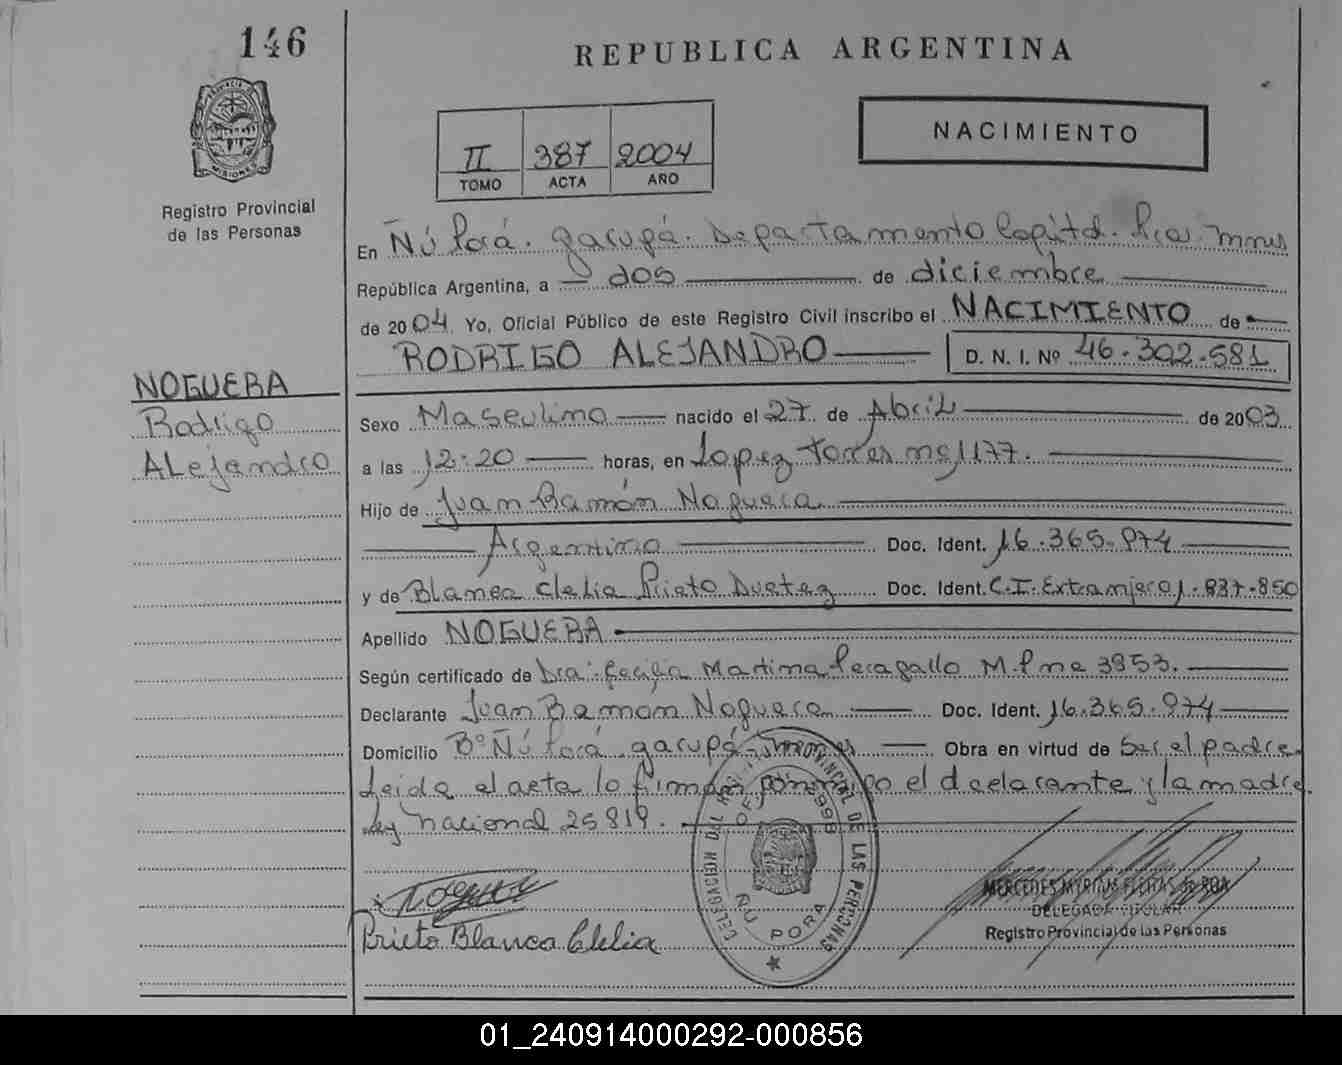 146
REPUBLICA ARGENTINA
PROVINCIA DE MISIONES
Registro Provincial
de las Personas
II 387 2004
TOMO ACTA AÑO
NACIMIENTO
En Ñú Porá. Garupá. Departamento Capital. Pcia. Mnes
República Argentina, a dos de diciembre
de 2004 Yo, Oficial Público de este Registro Civil inscribo el NACIMIENTO de
RODRIGO ALEJANDRO D. N. I. Nº 46.302.581
NOGUERA
Rodrigo
Alejandro
Sexo Masculino nacido el 27 de Abril de 2003
a las 12:20 horas, en Lopez Torres nº 1177.
Hijo de Juan Ramón Noguera
Argentino Doc. Ident. 16.365.974
y de Blanca Clelia Prieto Duetez Doc. Ident. C.I. Extranjera 1.837.850
Apellido NOGUERA
Según certificado de Dra: Cecilia Martina Peragallo M.P nº 3953.
Declarante Juan Ramon Noguera Doc. Ident. 16.365.974
Domicilio Bº Ñú Porá garupá misiones Obra en virtud de Ser el padre
Leida el acta lo firman conmigo el declarante y la madre.
Ley nacional 25819.
Noguera
Prieto Blanca Clelia
DELEGACION DEL REGISTRO PROVINCIAL DE LAS PERSONAS
ÑU PORA
MERCEDES MYRIAM FLEITAS de ROA
DELEGADA TITULAR
Registro Provincial de las Personas
01_240914000292-000856